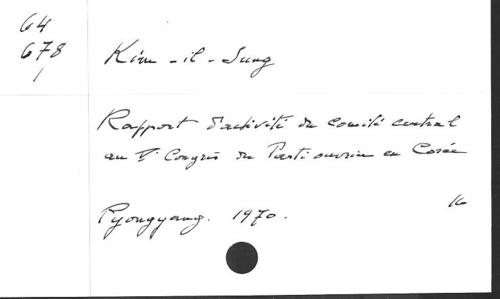 64
678
1
Kim-il-Sung
Rapport d'activité du Comité central
au Vᵉ Congrès du Parti ouvrier en Corée
Pyongyang. 1970.
16